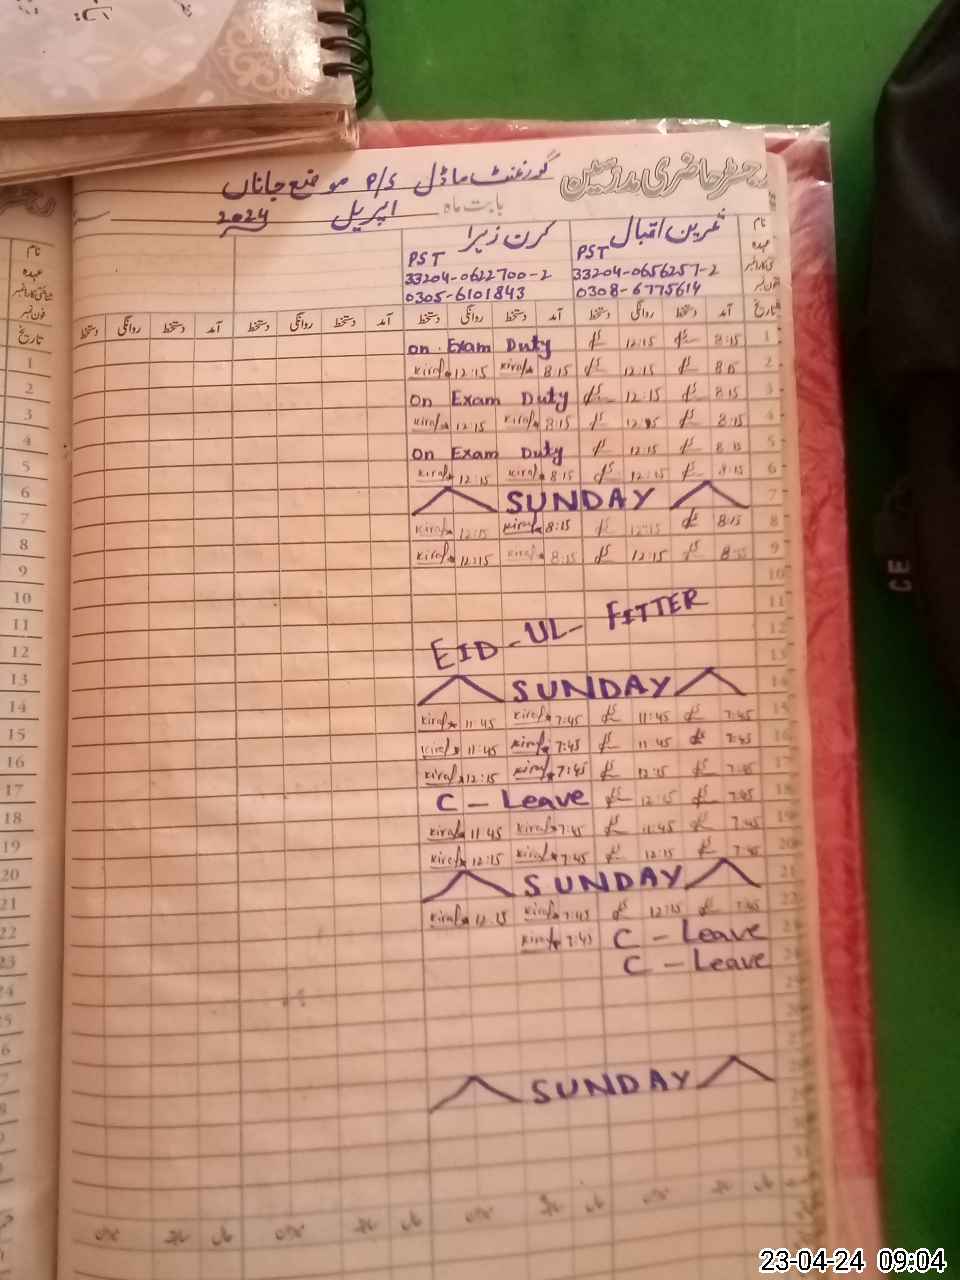 رجسٹر حاضری مدرسین گورنمنٹ ماڈل P/S موضع جاناں
بابت ماہ اپریل 2024
نام ثمرین اقبال کرن زہرا
عہدہ PST PST
شناختی کارڈ نمبر 33204-0656257-2 33204-0622700-2
فون نمبر 0308-6775614 0305-6101843
تاریخ آمد دستخط روانگی دستخط آمد دستخط روانگی دستخط آمد دستخط روانگی دستخط آمد دستخط روانگی دستخط
On Exam Duty 12:15 8:15 1
Kiran 12:15 Kiran 8:15 12:15 8:15 2
On Exam Duty 12:15 8:15 3
Kiran 12:15 Kiran 8:15 12:15 8:15 4
On Exam Duty 12:15 8:15 5
Kiran 12:15 Kiran 8:15 12:15 8:15 6
SUNDAY 7
Kiran 12:15 Kiran 8:15 12:15 8:15 8
Kiran 12:15 Kiran 8:15 12:15 8:15 9
10
11
EID-UL-FITTER 12
13
SUNDAY 14
Kiran 11:45 Kiran 7:45 11:45 7:45 15
Kiran 11:45 Kiran 7:45 11:45 7:45 16
Kiran 12:15 Kiran 7:45 12:15 7:45 17
C-Leave 12:15 7:45 18
Kiran 11:45 Kiran 7:45 11:45 7:45 19
Kiran 12:15 Kiran 7:45 12:15 7:45 20
SUNDAY 21
Kiran 12:15 Kiran 7:45 12:15 7:45 22
Kiran 7:45 C-Leave 23
C-Leave 24
SUNDAY
23-04-24 09:04
CE